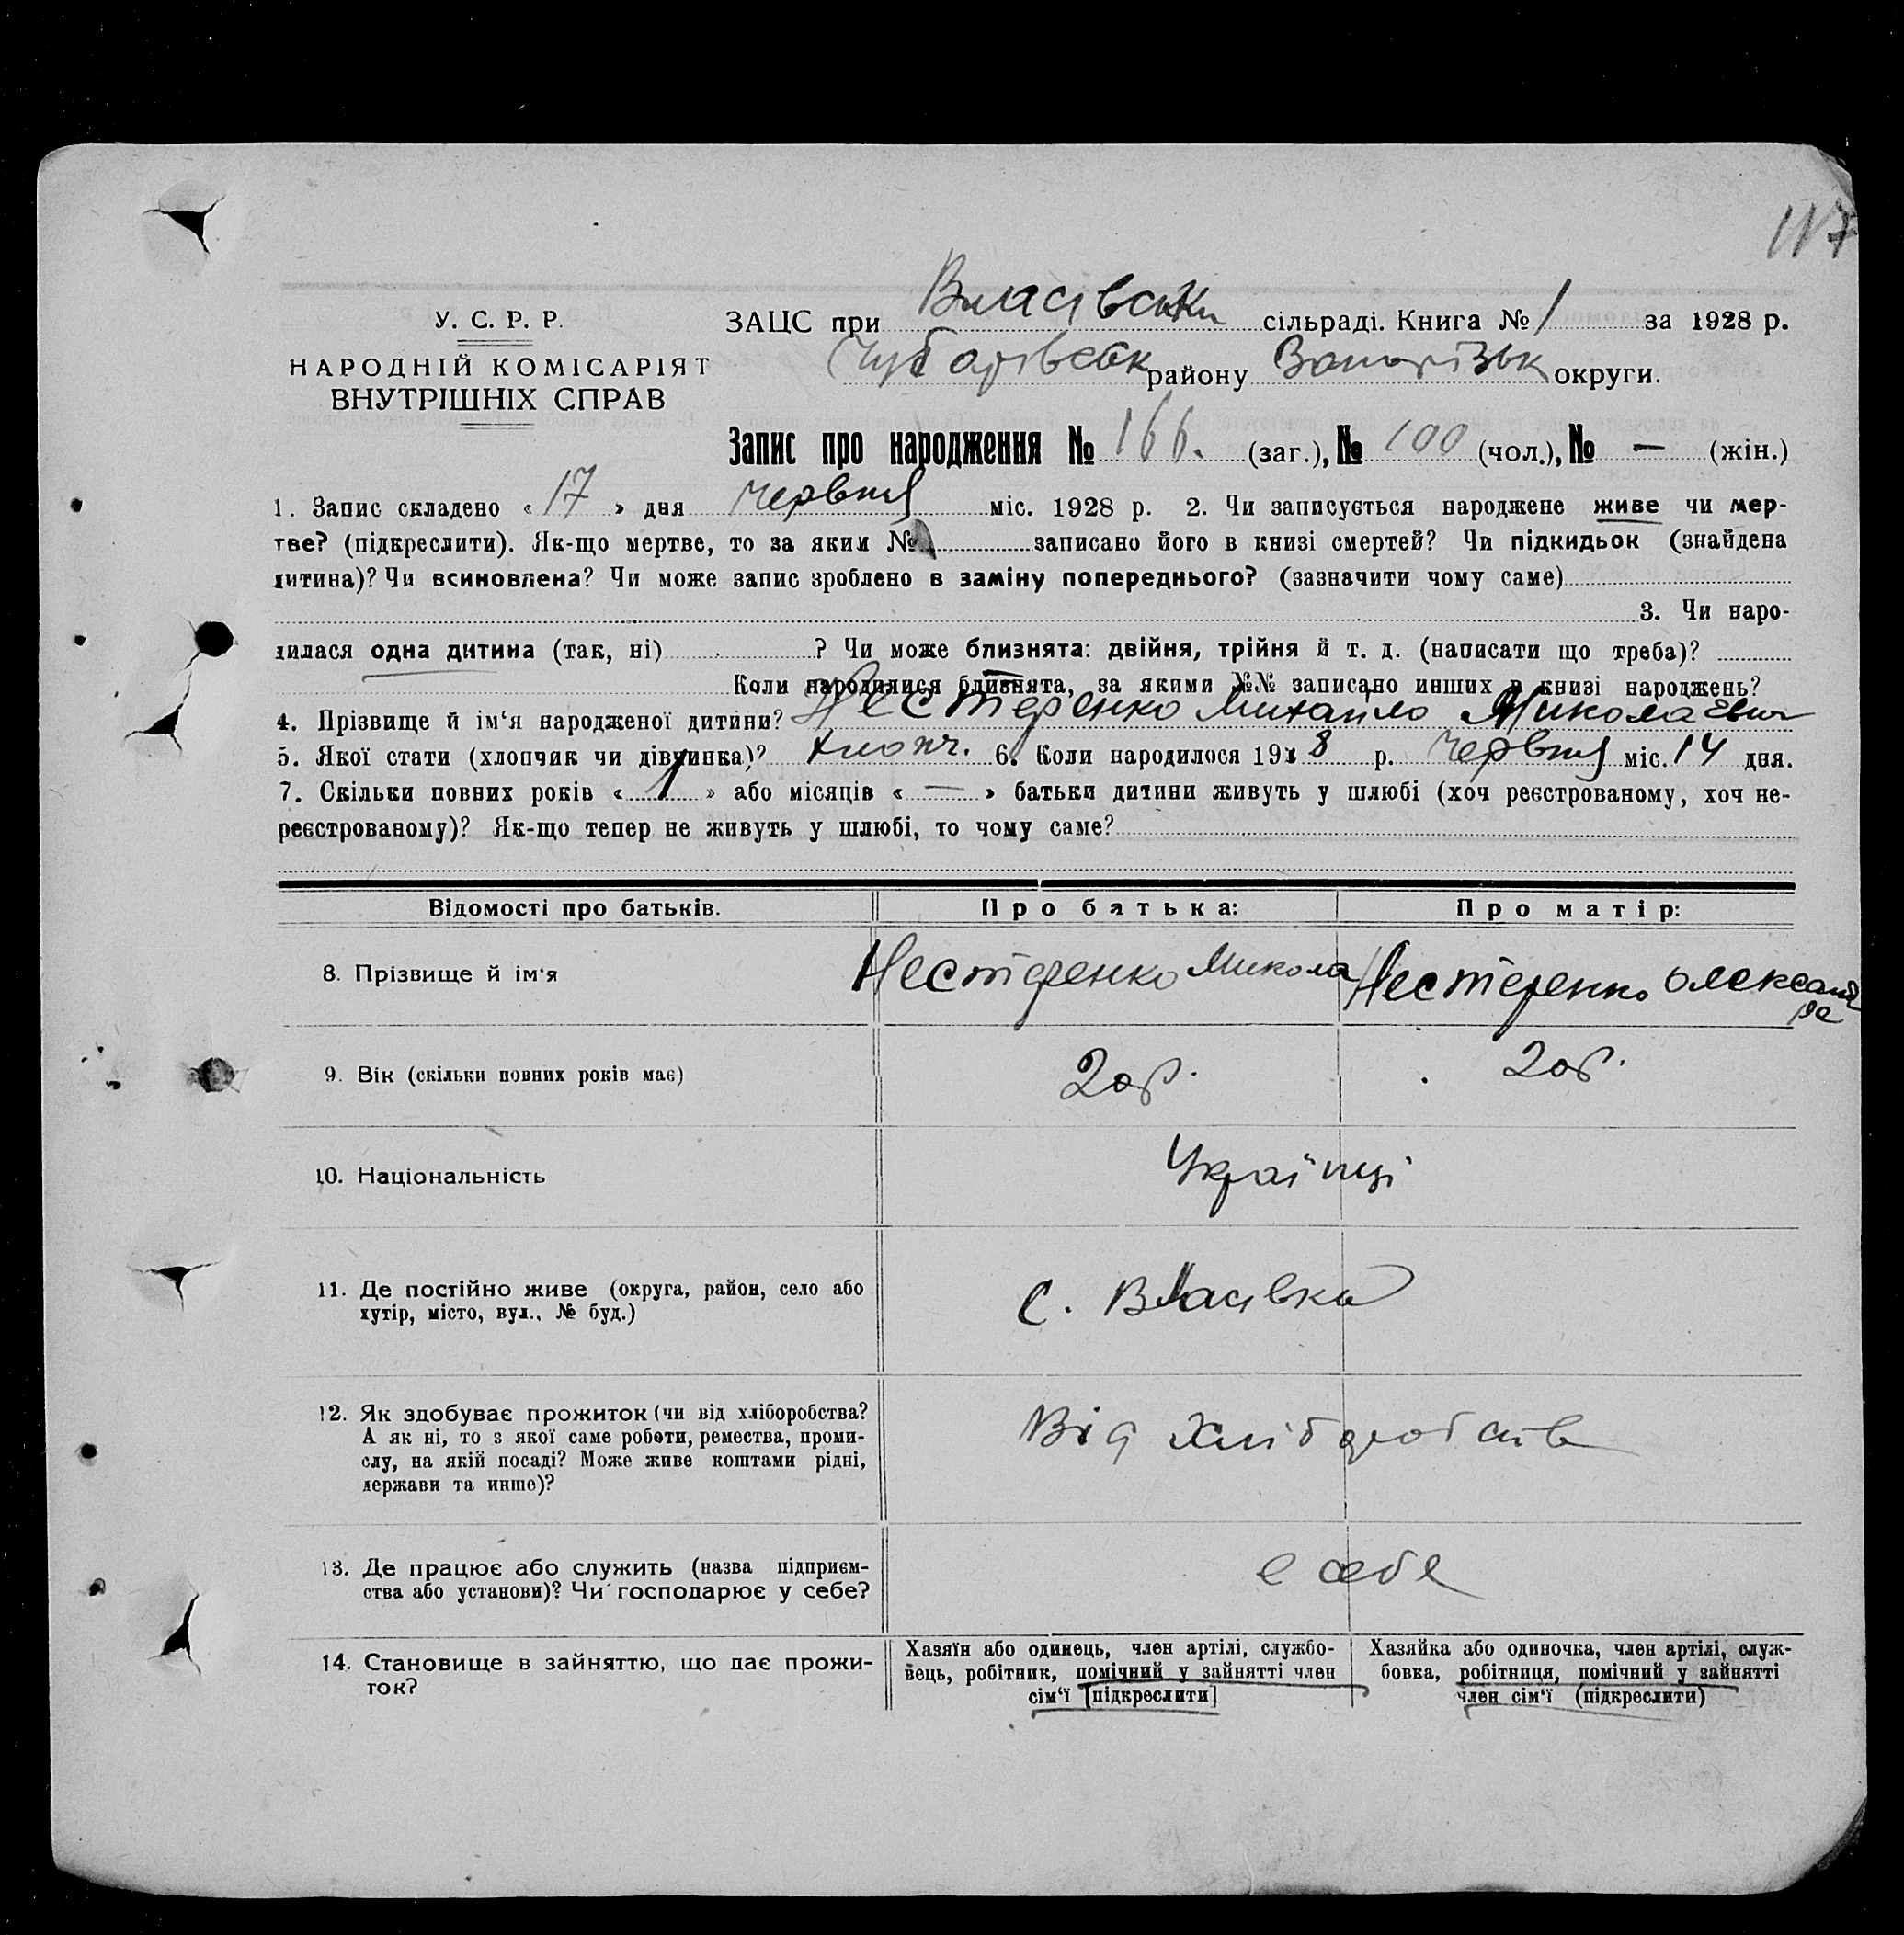 117
У. С. Р. Р.
НАРОДНІЙ КОМІСАРІЯТ
ВНУТРІШНІХ СПРАВ
ЗАЦС при Власівськ сільраді. Книга № 1 за 1928 р.
Чубарівськ району Запорізьк округи.
Запис про народження № 166. (заг.), № 100 (чол.), № — (жін.)
1. Запис складено « 17 » дня червня міс. 1928 р. 2. Чи записується народжене живе чи мер-
тве? (підкреслити). Як-що мертве, то за яким № записано його в книзі смертей? Чи підкидьок (знайдена
дитина)? Чи всиновлена? Чи може запис зроблено в заміну попереднього? (зазначити чому саме)
3. Чи наро-
дилася одна дитина (так, ні) ? Чи може близнята: двійня, трійня й т. д. (написати що треба)?
Коли народилися близнята, за якими №№ записано инших в книзі народжень?
4. Прізвище й ім‘я народженої дитини? Нестеренко Михайло Миколаєвич
5. Якої стати (хлопчик чи дівчинка)? хлопч. 6. Коли народилося 1928 р. червня міс. 14 дня.
7. Скільки повних років « 1 » або місяців « — » батьки дитини живуть у шлюбі (хоч реєстрованому, хоч не-
реєстрованому)? Як-що тепер не живуть у шлюбі, то чому саме?
Відомості про батьків. Про батька: Про матір:
8. Прізвище й ім‘я Нестеренко Микола Нестеренко Олександ
ра
9. Вік (скільки повних років має) 20р. 20р.
10. Національність Українці
11. Де постійно живе (округа, район, село або
хутір, місто, вул., № буд.) с. Власівка
12. Як здобуває прожиток (чи від хліборобства?
А як ні, то з якої саме роботи, ремества, проми-
слу, на якій посаді? Може живе коштами рідні,
держави та инше)? Від хліборобства
13. Де працює або служить (назва підприєм-
ства або установи)? Чи господарює у себе? себе
14. Становище в зайняттю, що дає прожи-
ток?
Хазяїн або одинець, член артілі, службо-
вець, робітник, помічний у зайнятті член
сім‘ї [підкреслити]
Хазяйка або одиночка, член артілі, служ-
бовка, робітниця, помічний у зайнятті
член сім‘ї (підкреслити)